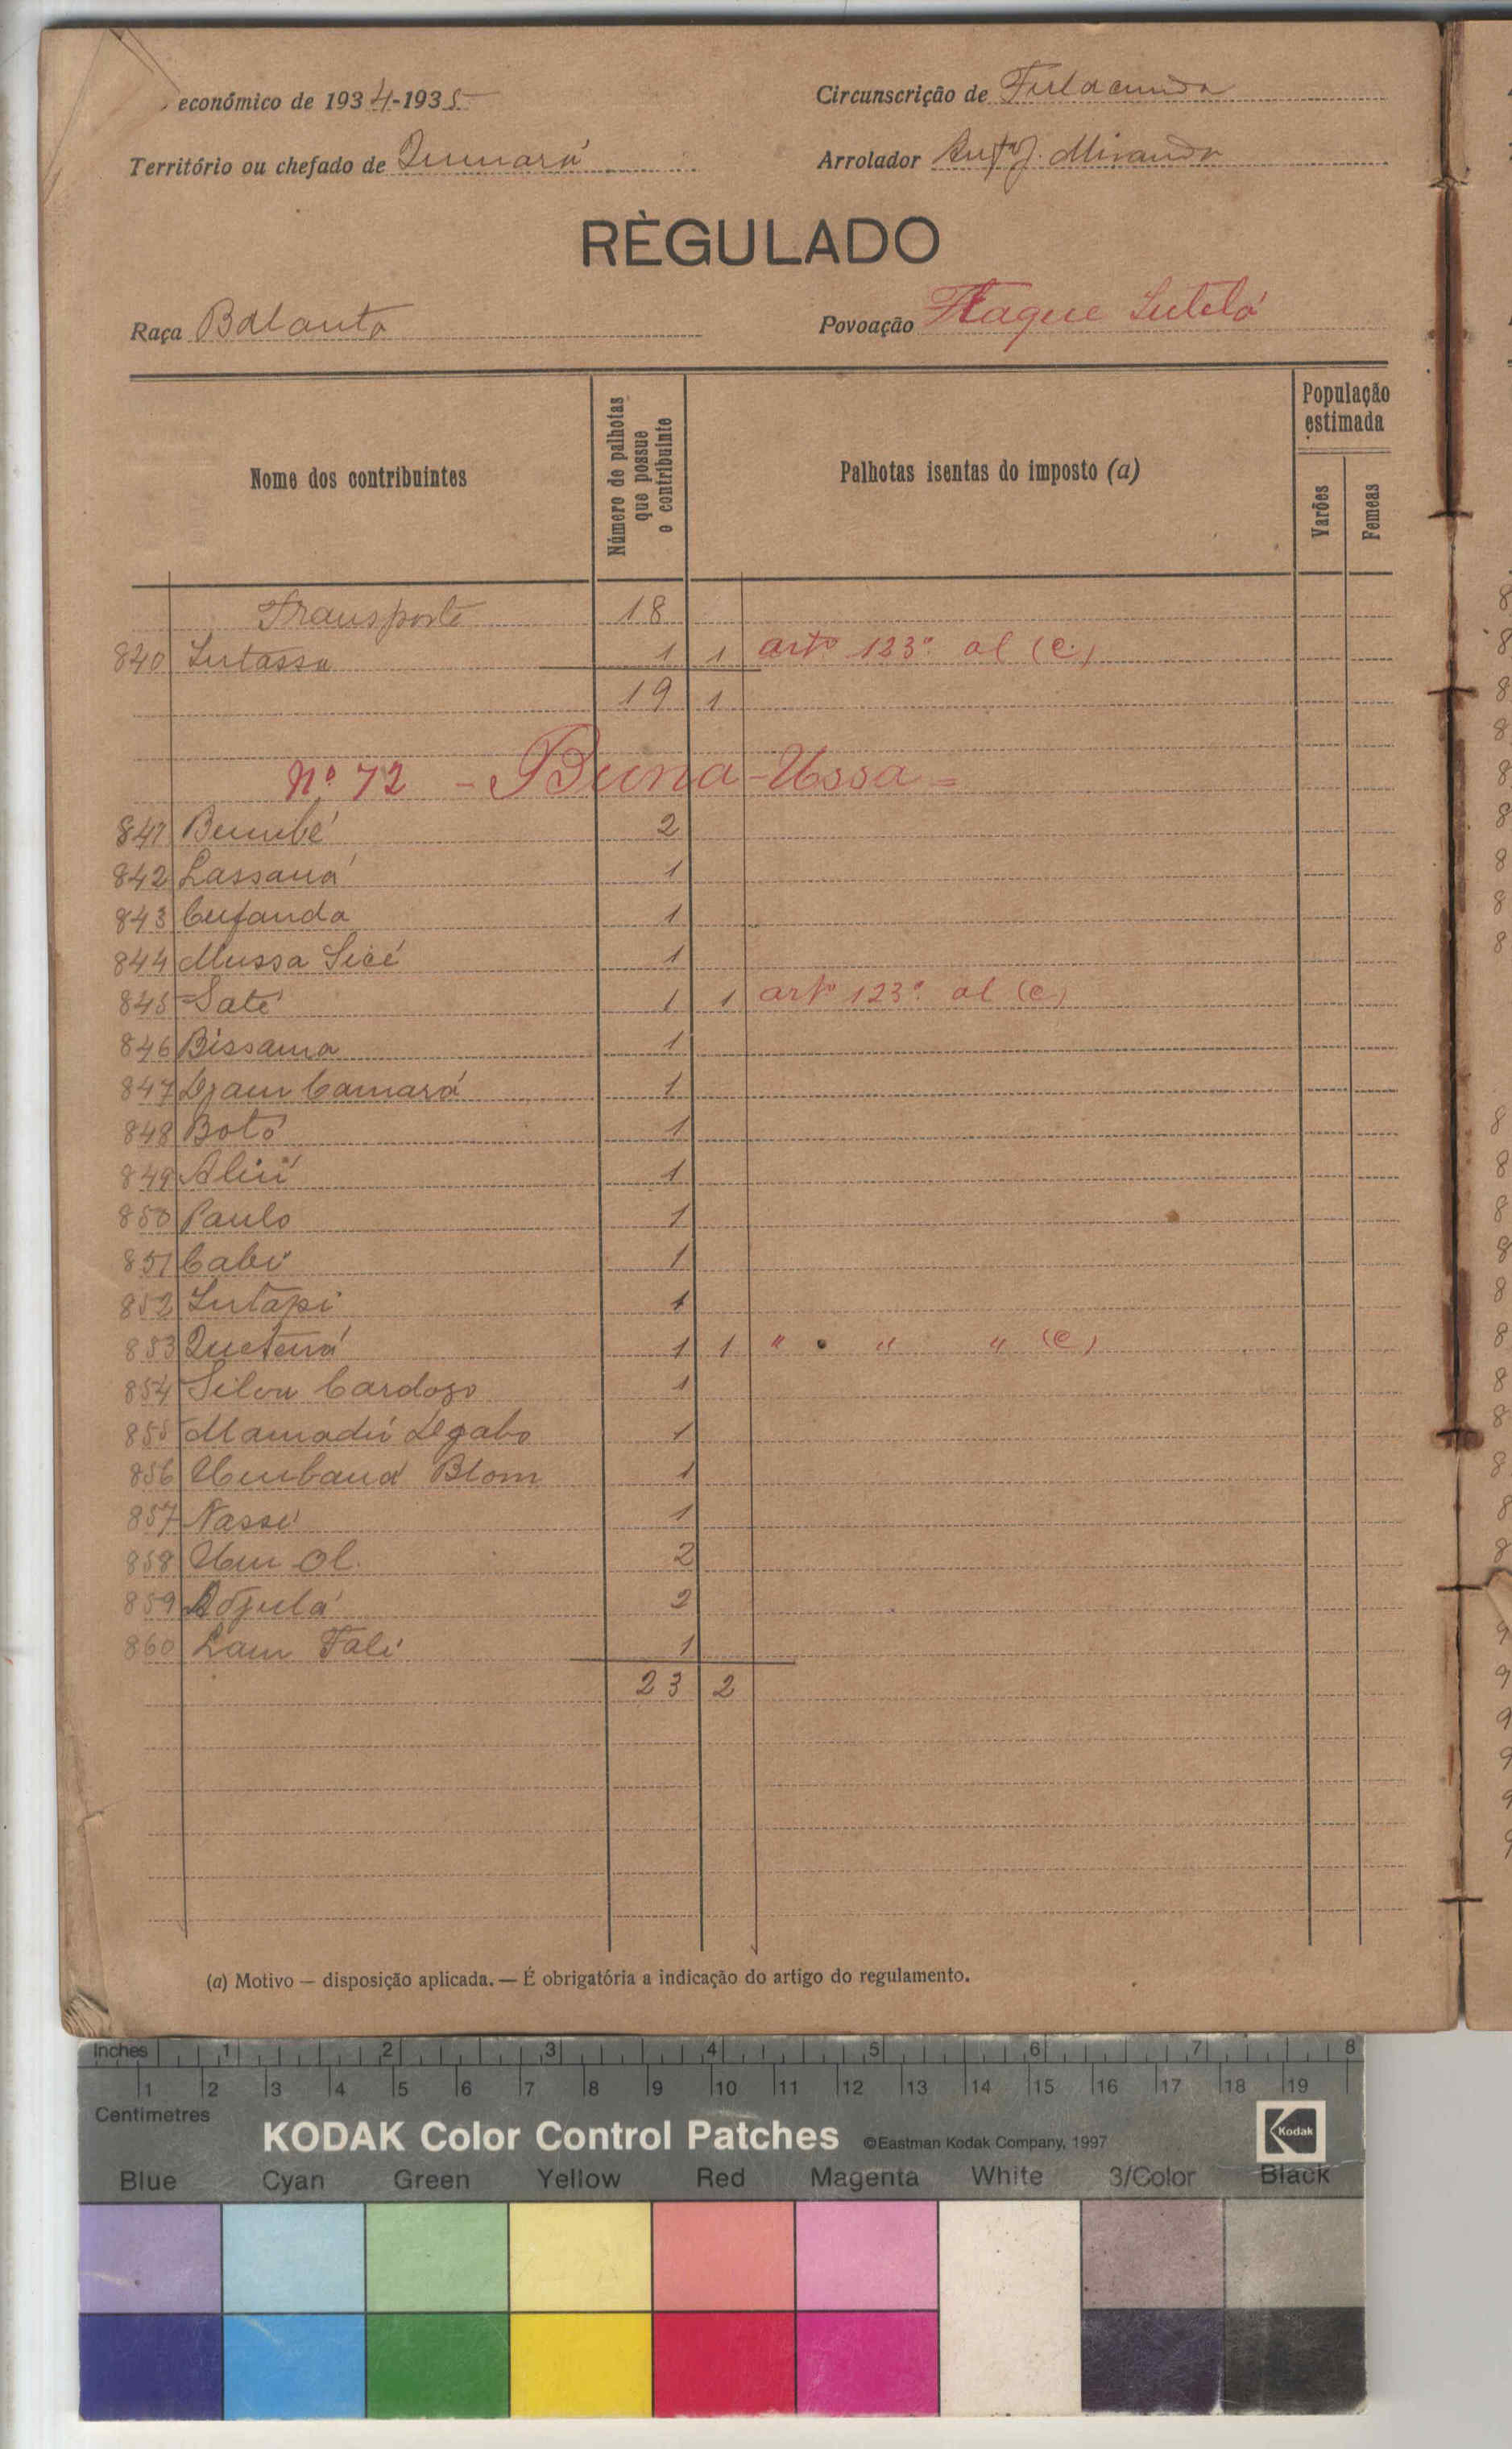 económico de 1934-1935
Circunscrição de Fulacunda
Território ou chefado de Quinará
Arrolador Antº J. Miranda
RÈGULADO
Raça Balanta
Povoação Flaque Sutelá
Nome dos contribuintes
Número de palhotas que possue o contribuinte
Palhotas isentas do imposto (a)
População estimada
Varões
Femeas
Transporte 18
840 Intassa 1 1 artº 123º al (c)
19 1
Nº 72 - Buna-Ussa =
841 Bumbé 2
842 Lassaná 1
843 Cufanda 1
844 Mussa Sicé 1
845 Saté 1 1 artº 123º al (c)
846 Bissama 1
847 Djam Camará 1
848 Botó 1
849 Aliú 1
850 Paulo 1
851 Cabi 1
852 Intapi 1
853 Quetená 1 1 " " " " (c)
854 Silva Cardozo 1
855 Mamadú Djabo 1
856 Umbaná Blom 1
857 Nassi 1
858 Um Ol. 2
859 Adjulá 2
860 Lam Fali 1
23 2
(a) Motivo — disposição aplicada. — É obrigatória a indicação do artigo do regulamento.
Inches 1 2 3 4 5 6 7 8
1 2 3 4 5 6 7 8 9 10 11 12 13 14 15 16 17 18 19
Centimetres
KODAK Color Control Patches ©Eastman Kodak Company, 1997 Kodak
Blue Cyan Green Yellow Red Magenta White 3/Color Black